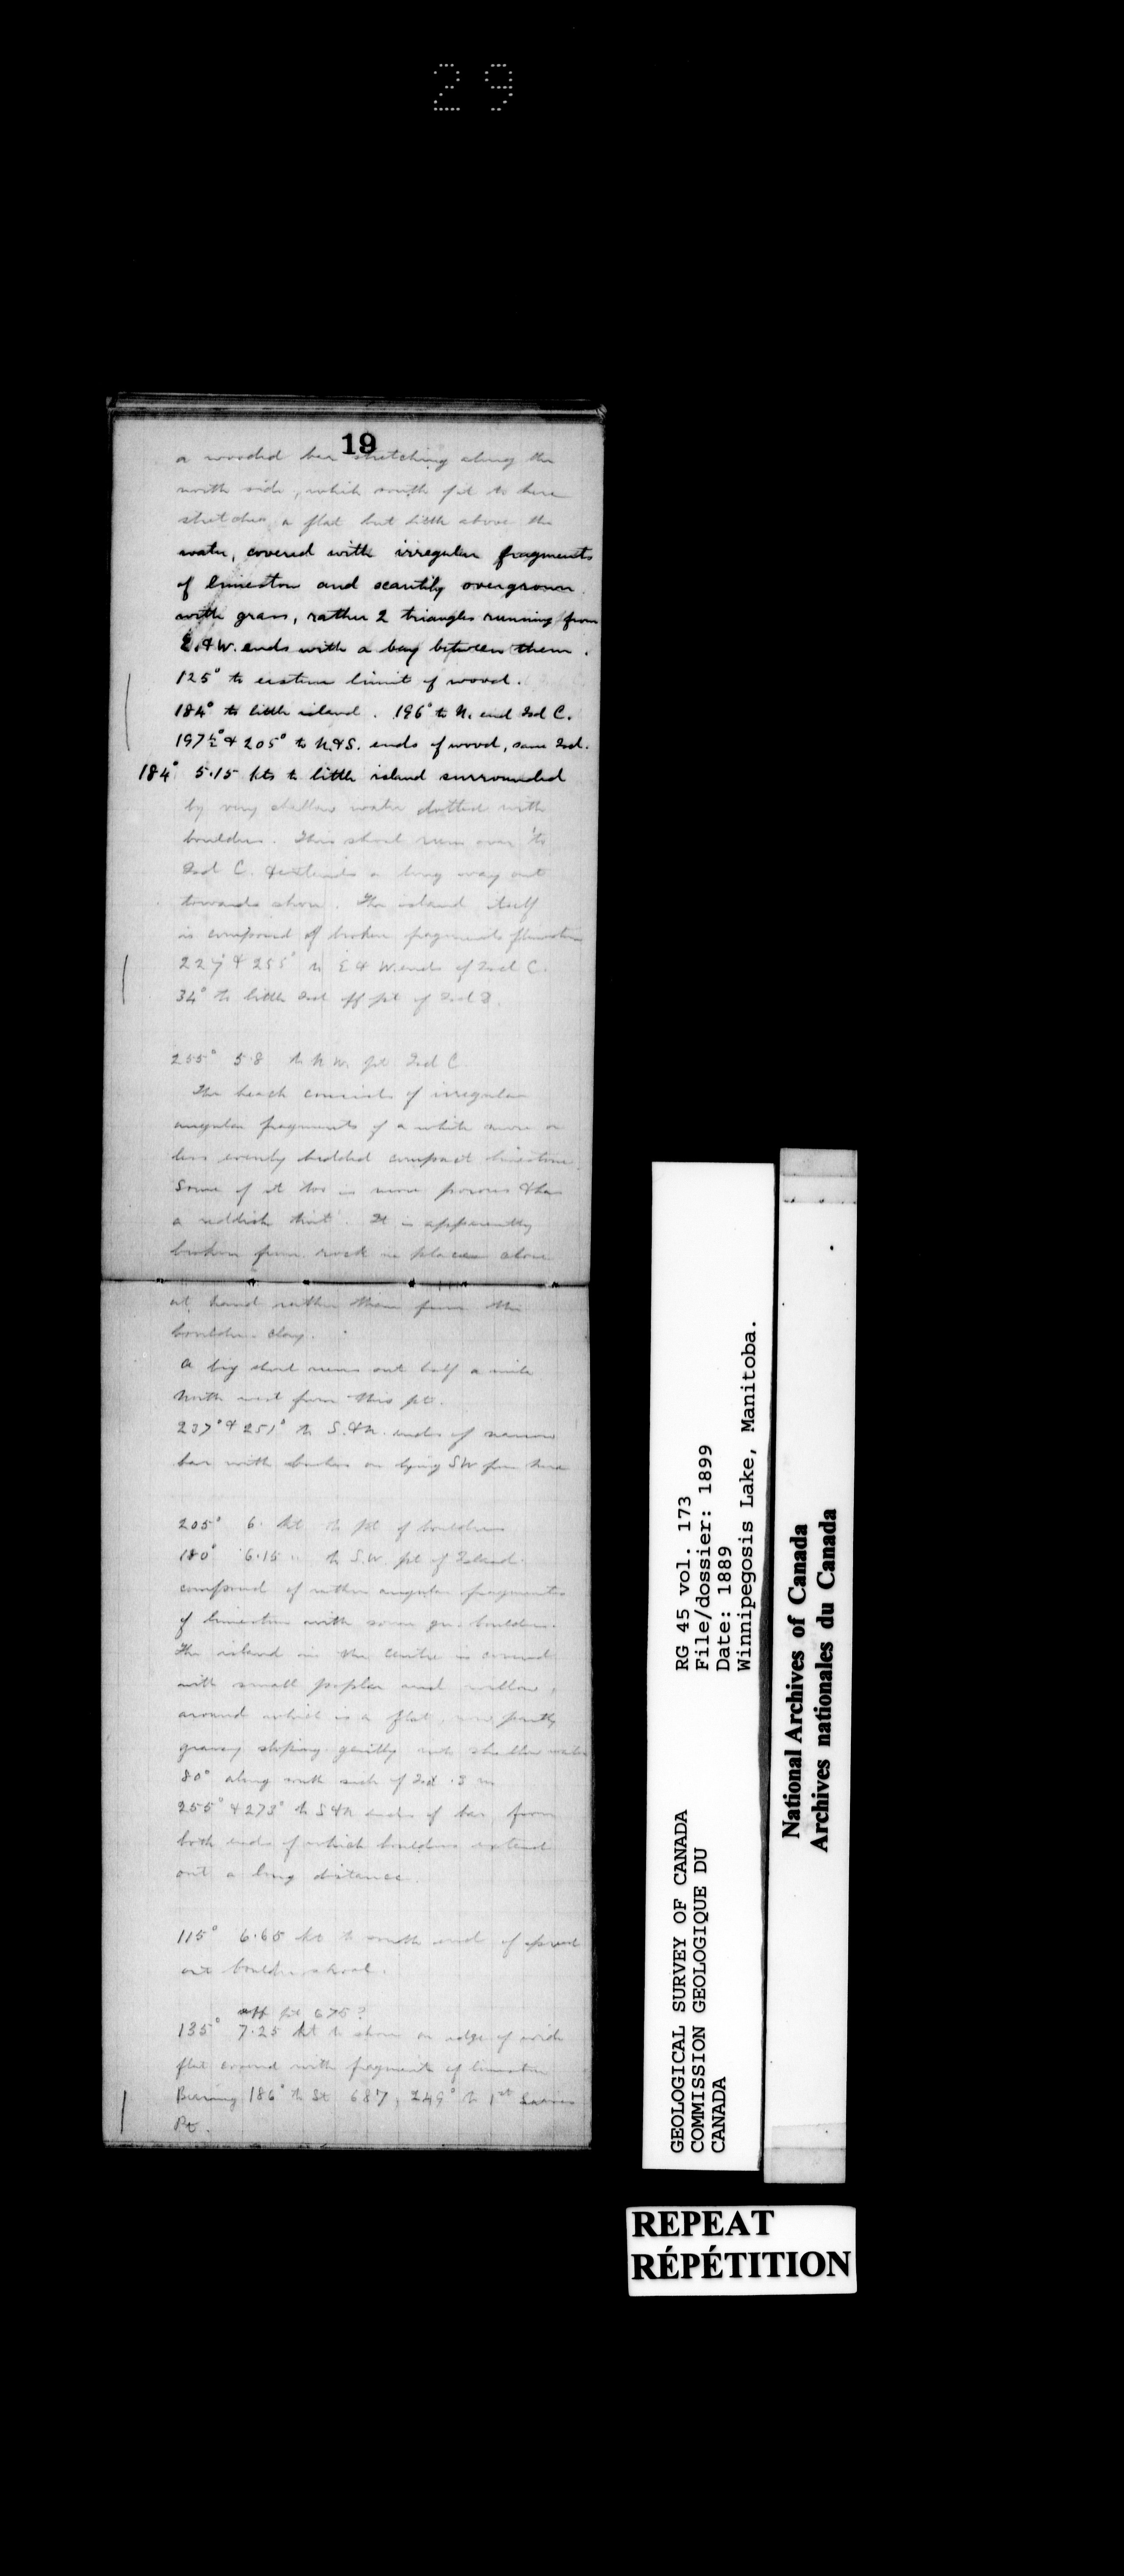 29
19
a wooded bar stretching along the
north side, which south pt to here
stretches a flat but little above the
water, covered with irregular fragments
of limestone and scantily overgrown
with grass, rather 2 triangles running from
E. & W. ends with a bay between them.
125° to eastern limit of wood.
184° to little island. 196° to N. end Isd C.
197½° & 205° to N. & S. ends of wood, same Isd.
184° 5.15 kts to little island surrounded
by very shallow water dotted with
boulders. This shoal runs over to
Isd C. & extends a long way out
towards shore. The island itself
is composed of broken fragments limestone
227° & 255° to E & W. ends of Isd C.
34° to little Isd off pt of Isd B.
255° 5.8 to N W. pt Isd C
The beach consists of irregular
angular fragments of a white more or
less evenly bedded compact limestone.
Some of it too is more porous & has
a reddish tint. It is apparently
broken from rock in places close
at hand rather than from the
boulder clay.
A big shoal runs out half a mile
north west from this pt.
237° & 251° to S. & N. ends of narrow
bar with bushes on lying SW from here
205° 6. kts to pt of boulders
180° 6.15 " to S.W. pt of Island
composed of rather angular fragments
of limestone with some gn. boulders.
The island in the centre is covered
with small poplar and willow,
around which is a flat, now partly
grassy sloping gently into shallow water
80° along south side of Isd .3 m
255° & 273° to S & N ends of bar, from
both ends of which boulders extend
out a long distance.
115° 6.65 kts to south end of spread
out boulder shoal.
off pt 675?
135° 7.25 kts to shore on edge of wide
flat covered with fragments of limestone
Bearing 186° to St 687, 249° to 1st
Pt.
GEOLOGICAL SURVEY OF CANADA
COMMISSION GEOLOGIQUE DU
CANADA
RG 45 vol. 173
File/dossier: 1899
Date: 1889
Winnipegosis Lake, Manitoba.
National Archives of Canada
Archives nationales du Canada
REPEAT
RÉPÉTITION